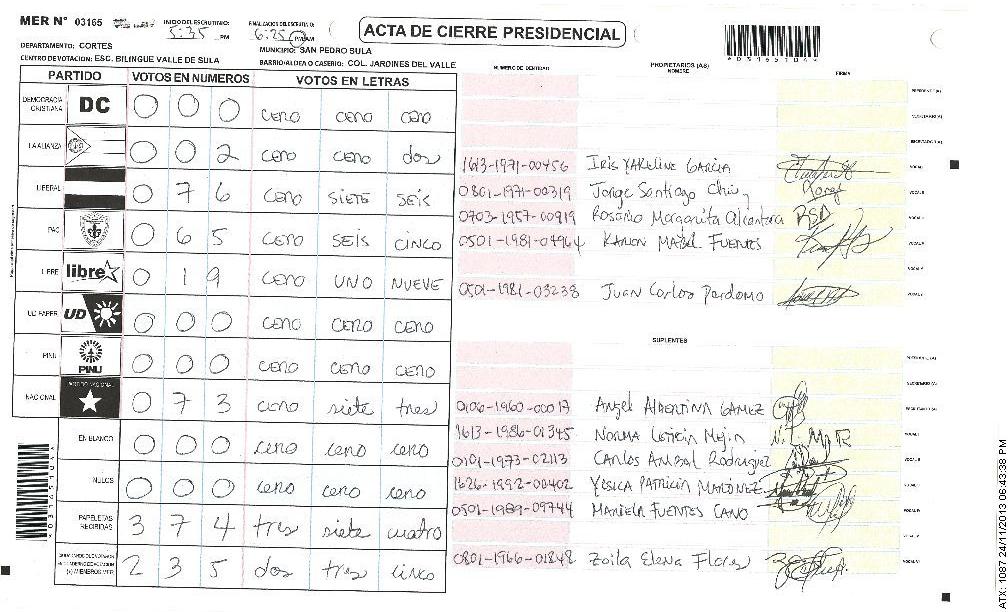 MER N° 03165 INICIO DE ESCRUTINIO: 5:35 PM FINALIZACION DE ESCRUTINIO: 6:25 PM/AM
ACTA DE CIERRE PRESIDENCIAL
DEPARTAMENTO: CORTES MUNICIPIO: SAN PEDRO SULA
CENTRO DE VOTACION: ESC. BILINGUE VALLE DE SULA BARRIO/ALDEA O CASERIO: COL. JARDINES DEL VALLE
PARTIDO VOTOS EN NUMEROS VOTOS EN LETRAS
DEMOCRACIA CRISTIANA DC 0 0 0 CERO CERO CERO
LA ALIANZA 0 0 2 CERO CERO dos
LIBERAL 0 7 6 CERO SIETE SEIS
PAC 0 6 5 CERO SEIS CINCO
LIBRE libre 0 1 9 CERO UNO NUEVE
UD FAPER UD 0 0 0 CERO CERO CERO
PINU PINU 0 0 0 CERO CERO CERO
NACIONAL PARTIDO NACIONAL 0 7 3 cero siete tres
EN BLANCO 0 0 0 cero cero cero
NULOS 0 0 0 cero cero cero
PAPELETAS RECIBIDAS 3 7 4 tres siete cuatro
2 3 5 dos tres cinco
NUMERO DE IDENTIDAD PROPIETARIOS (AS) NOMBRE FIRMA
PRESIDENTE (A)
SECRETARIO (A)
ESCRUTADOR (A)
1613-1971-00456 IRIS YAKELINE GARCIA VOCAL I
0801-1971-00319 Jorge Santiago Chiu VOCAL II
0703-1957-00919 Rosario Margarita Alcantara VOCAL III
0501-1981-04964 KAREN MABEL FUENTES VOCAL IV
VOCAL V
0501-1981-03238 Juan Carlos Perdomo VOCAL VI
SUPLENTES
PRESIDENTE (A)
SECRETARIO (A)
0106-1960-00017 Angel ALBERTINA GAMEZ ESCRUTADOR (A)
1613-1986-01345 NORMA Leticia Mejia VOCAL I
0101-1973-02113 CARLOS ANIBAL Rodriguez VOCAL II
1626-1992-00402 YESICA PATRICIA MARTINEZ VOCAL III
0501-1989-09744 MARIELA FUENTES CANO VOCAL IV
VOCAL V
0801-1966-01848 Zoila Elena Flores VOCAL VI
ATX: 1087 24/11/2013 06:43:38 PM